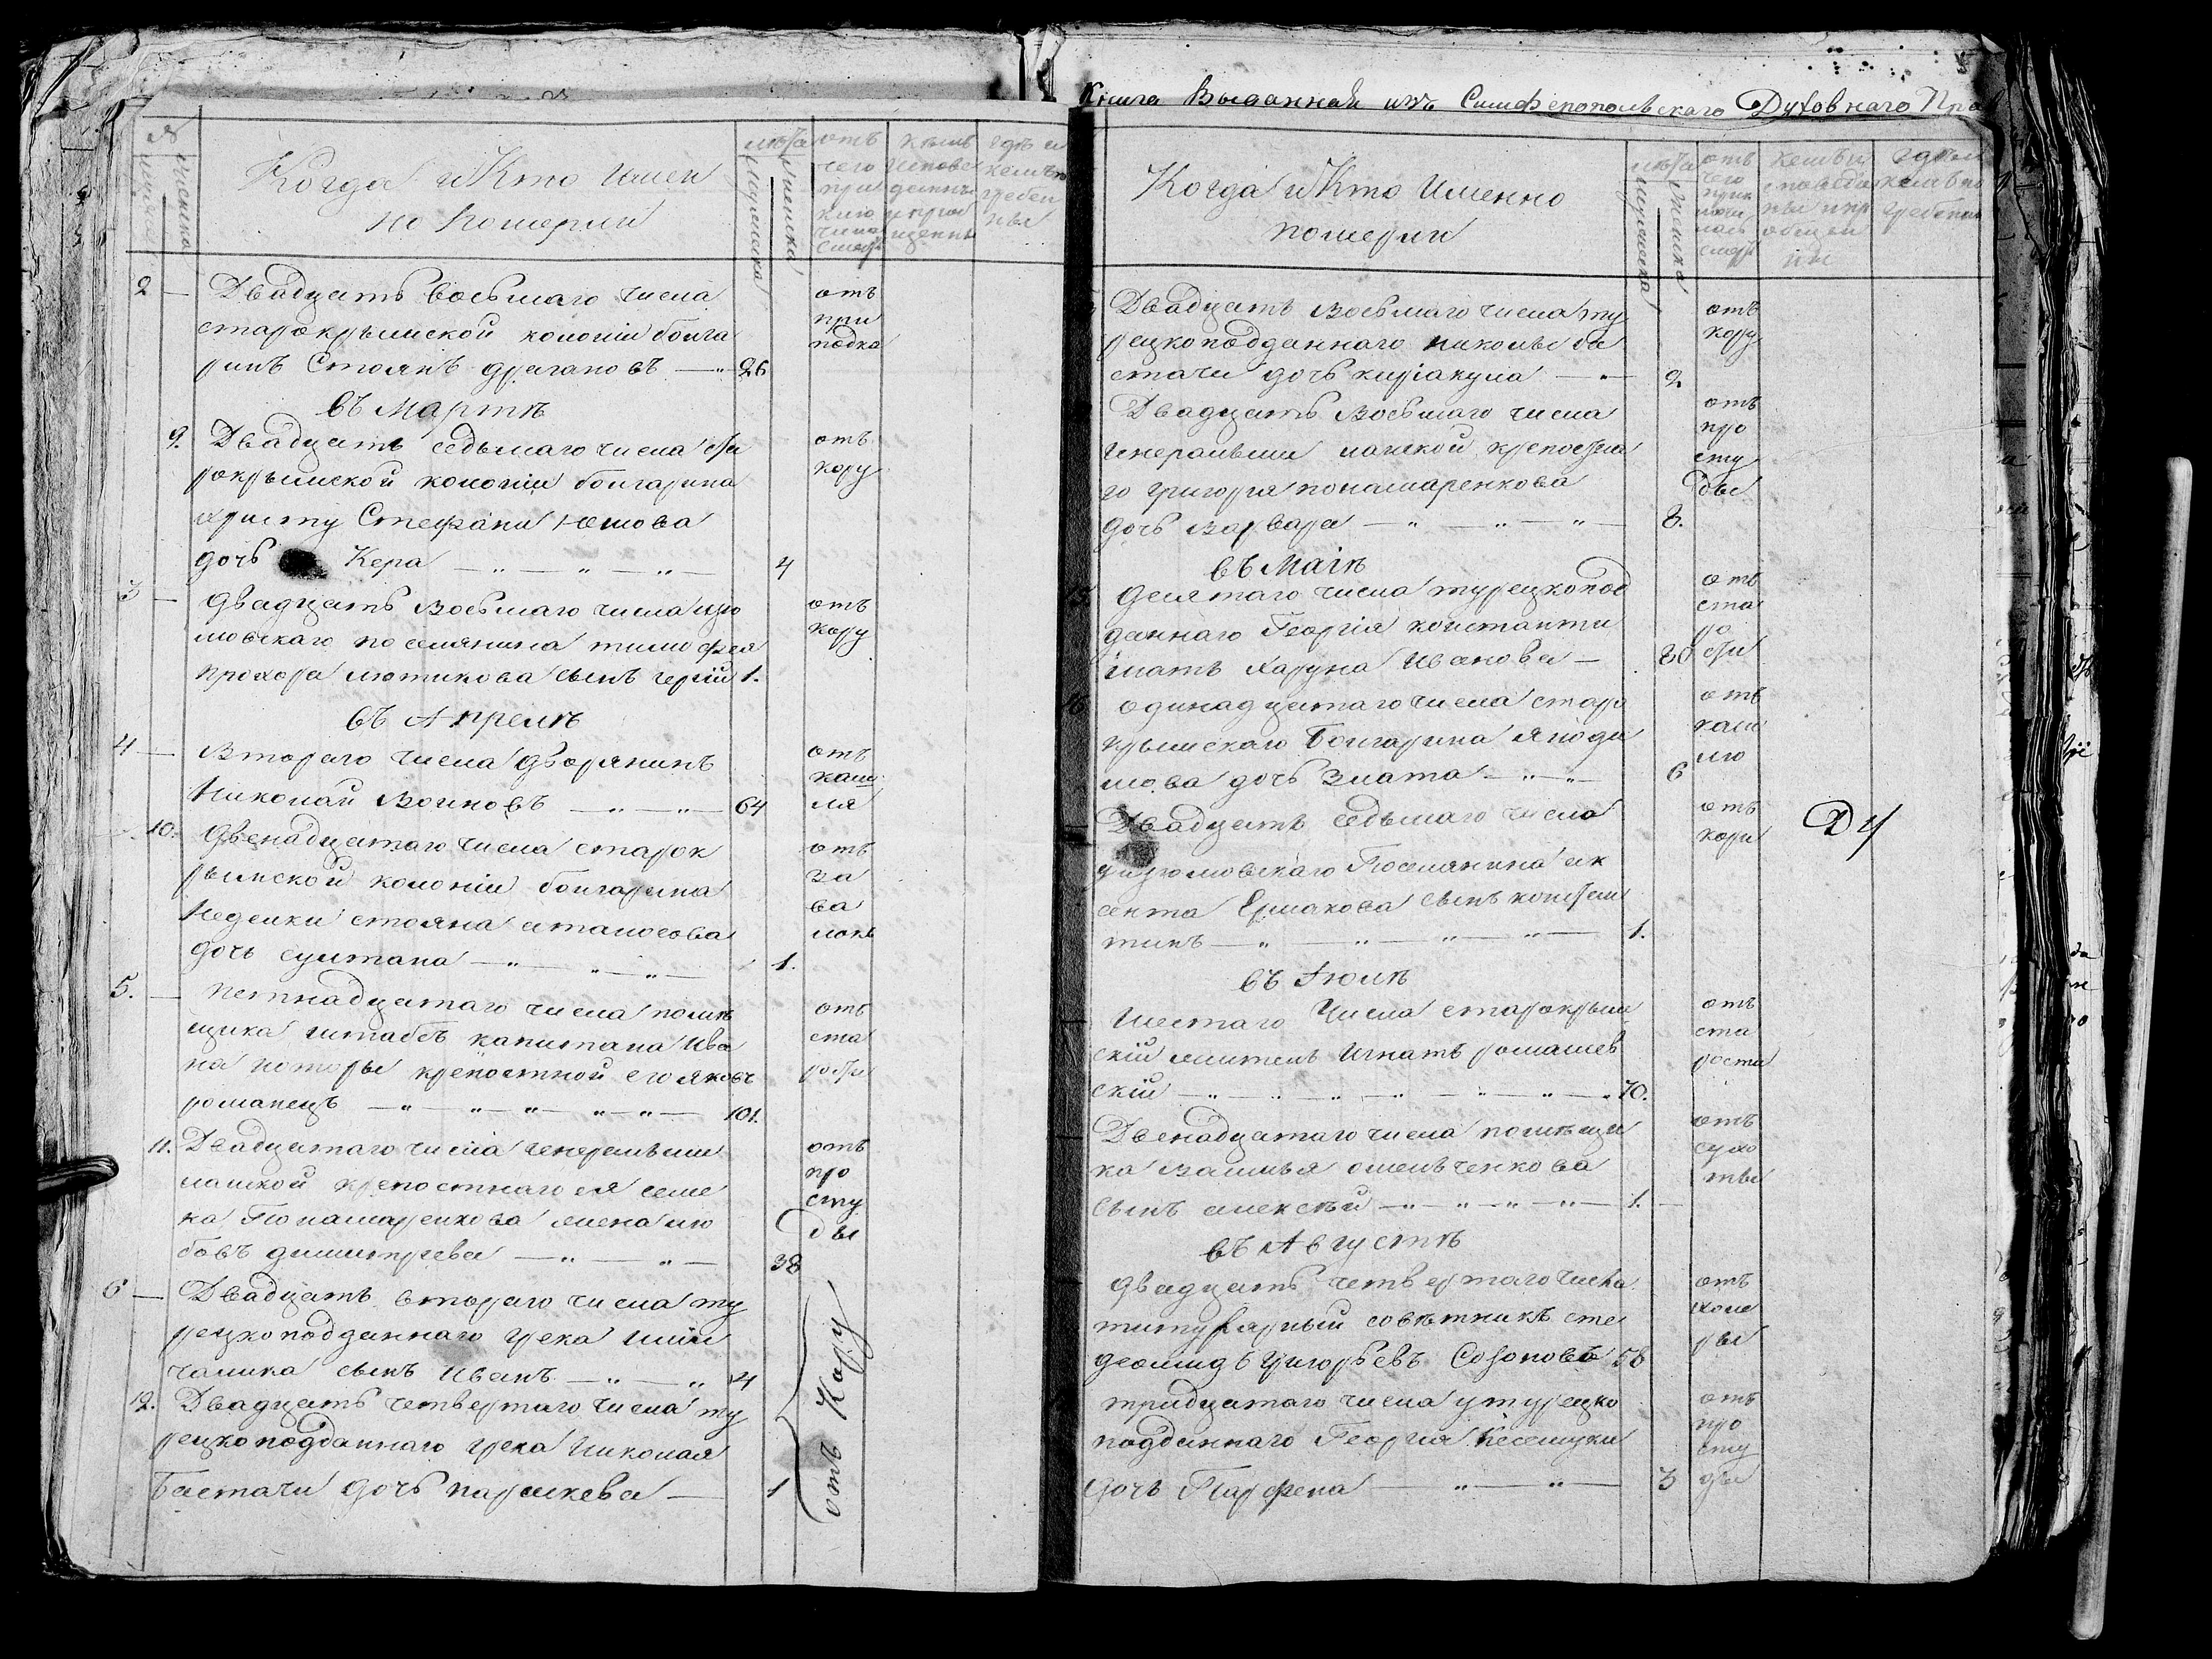 Книга Выданная изъ Симферопольскаго Духовнаго Пра
Когда и Кто Имен
но Померли
мужеска
женска
лѣта
отъ
чего
при
клю
чила
смер
кѣмъ
исповеда
и прі
гдѣ и
кемъ по
гребе
ны
2 — Двадцать восьмаго числа
старокрымской колоніи болга
ринъ Стоянъ драгановъ — 26
отъ
при
падка
въ Мартѣ
9. Двадцать седьмаго числа ста
рокрымской колоніи болгарина
христу Стефана
дочь Кера — „ — „ — „ — 4
отъ
кору
3 — двадцать восьмаго числа изю
мовскаго поселянина тимофея
прохора лютикова сынъ 1.
отъ
кору
въ Апрелѣ
4 — Втораго числа дворянинъ
Николай Воиновъ — „ — „ — 64
отъ
кашу
ля
10. двенадцатаго числа старок
рымской колоніи болгарина
Неделки стояна
дочь султана — „ „ „ — 1.
отъ
за
ва
локъ
5. — петнадцатаго числа помѣ
щика штабсъ капитана Ива
на крепостной его яковъ
романецъ — „ — „ — „ — „ — „ — 101.
отъ
ста
рости
11. Двадцатаго числа генеральши
крепостнаго ея семе
ка Понамаренкова жена лю
бовъ димитрева — „ — „ — 38
отъ
про
сту
ды
6 — Двадцать втораго числа ту
рецкоподданнаго грека
чалика сынъ Иванъ — „ — „ 4
12. Двадцать четвертаго числа ту
рецкоподданнаго грека Николая
Бастачи дочь параскева — 1
отъ Кору
Когда и Кто Именно
померли
лѣта
мужеска
женска
отъ
чего
приклю
чи
лась
смер
кемъ и
споведа
ны и пр
общен
ны
где и
кемъ по
гребены
Двадцать восьмаго числа ту
рецкоподданнаго николы ба
стачи дочь киріакула — „ — 2.
отъ
кору
Двадцать Восьмаго числа
генеральши крепостна
го григорія понамаренкова
дочь варвара — „ — „ — „ — 8.
отъ
про
сту
ды
въ Маіѣ
15 Десятаго числа турецкопод
даннаго Георгія константи
мать Харуна Иванова — 80
отъ
ста
ро
сти
16 одинадцатаго числа старо
крымскаго Болгарина
мова дочь Злата — „ — „ — 6
отъ
каш
лю
Двадцать седьмаго числа
изюмовскаго Поселянина ак
сента Ермакова сынъ констан
тинъ — „ — „ — „ — „ — 1.
отъ
кори
въ Іюлѣ
Шестаго Числа старокрым
скій житель Игнатъ ромашев
скій — „ — „ — „ — „ — „ — „ 70.
отъ
ста
роста
Двенадцатаго числа помѣщи
ка василья омельченкова
сынъ алексѣй — „ — „ — „ — „ — 1.
отъ
сухо
ты
въ Августѣ
двадцать четвертаго числа
титулярный совѣтникъ
деомидъ Григорьевъ Созоновъ 58
отъ
холе
ры
тридцатаго числа у турецко
подданнаго Георгія
дочь Парфена — „ — „ — 3
отъ
про
сту
ды